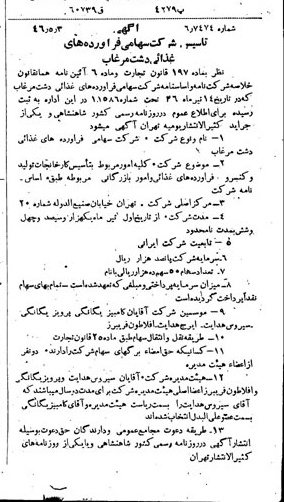 پ۴۲۷۹ ق۶۰۷۳۹
شماره ۶٫۷۴۷۴ آگهی ۴۶٫۵٫۳
تاسیس شرکت سهامی فراورده‌های
غذائی دشت مرغاب
نظر بماده ۱۹۷ قانون تجارت وماده ۶ آئین نامه همانقانون
خلاصه شرکت نامه واساسنامه شرکت سهامی فراورده‌های غذائی دشت مرغاب
که در تاریخ ۱۴ تیر ماه ۴۶ تحت شماره ۱۱٫۵۸۶ در این اداره به ثبت
رسیده برای اطلاع عموم در روزنامه رسمی کشور شاهنشاهی و یکی از
جراید کثیرالانتشار یومیه تهران آگهی میشود
۱- نام ونوع شرکت ۰ شرکت سهامی فراورده های غذائی
دشت مرغاب
۲- موضوع شرکت ۰ کلیه امور مربوط بتأسیس کارخانجات تولید
و کنسرو فراورده‌های غذائی وامور بازرگانی مربوطه طبق ۰ اساس ۰
نامه شرکت
۳- مرکز اصلی شرکت ۰ تهران خیابان صنیع الدوله شماره ۲۰
۴- مدت شرکت ۰ از تاریخ اول تیر ماه یکهزار وسیصد وچهل
وشش بمدت نامحدود
۵- تابعیت شرکت ایرانی
۶- سرمایه شرکت پانصد هزار ریال
۷- تعداد سهام ۵۰ سهم ده هزار ریالی بانام
۸- میزان سرمایه پرداختی ومبلغی که تعهد شده است ـ تمام بهای سهام
نقداً پرداخت گردیده است
۹- موسسین شرکت آقایان کامبیز یگانگی پرویز یگانگی
سیروس هدایت ایرج هدایت افلاطون فریبرز
۱۰- طریقه نقل وانتقال سهام طبق ماده ۲۵ قانون تجارت
۱۱- کسانیکه حق امضاء برگهای سهام شرکت را دارند ۰ دو نفر
از اعضاء هیئت مدیره
۱۲- هیئت مدیره شرکت ۰ آقایان سیروس هدایت وپرویز یگانگی
وافلاطون فریبرز اعضا اصلی هیئت مدیره شرکت برای مدت دو سال میباشند که
آقای سیروس هدایت را بسمت ریاست هیئت مدیره وآقای کامبیز یگانگی
بسمت عضو علی البدل انتخاب شده‌اند
۱۳- طریقه دعوت مجامع عمومی ودارندگان حق دعوت بوسیله
انتشار آگهی در روزنامه رسمی کشور شاهنشاهی ویا یکی از روزنامه‌های
کثیرالانتشار تهران